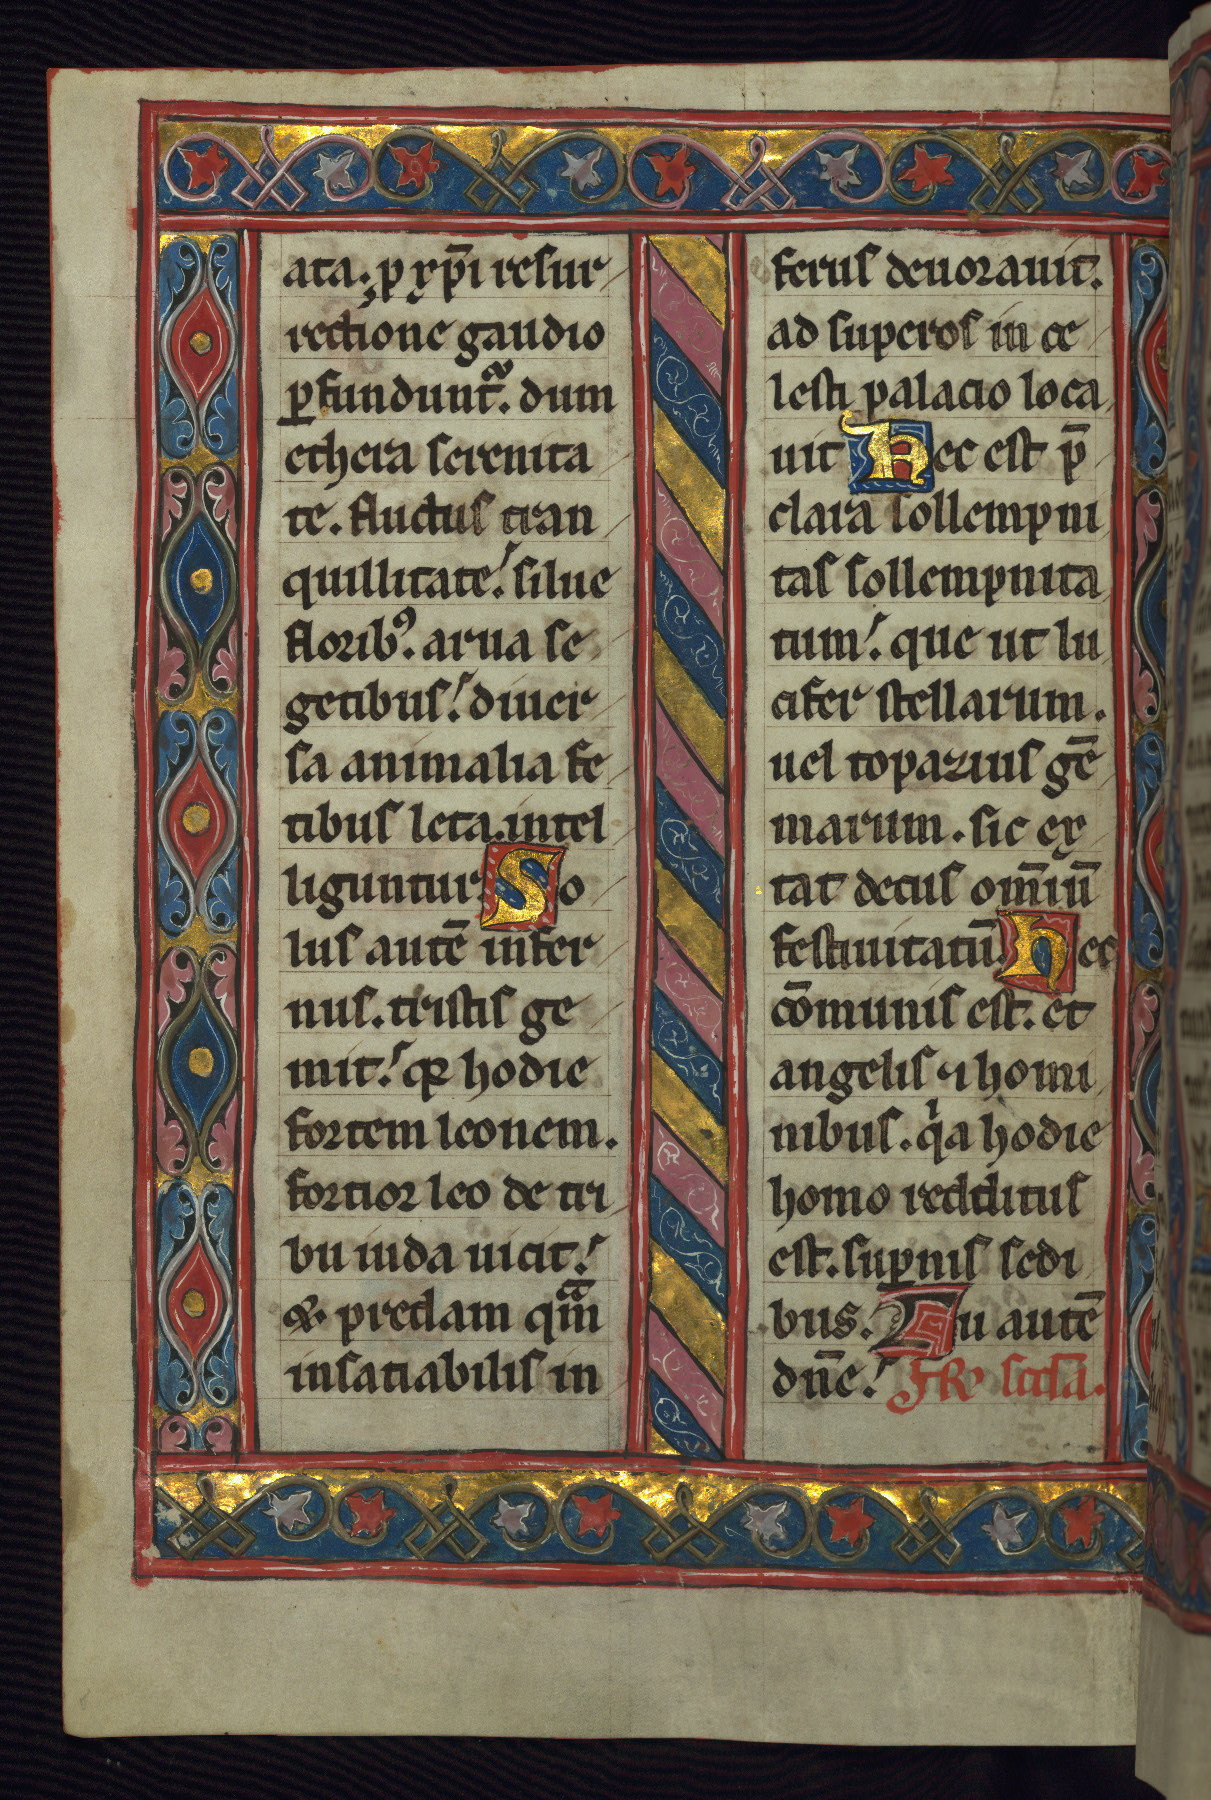 ata. p xp̄i resur
rectione gaudio
ꝑfundunt̃. dum
ethera serenita
te. fluctus tran
quillitate! silue
florib⁹. arua se
getibus! diuer
sa animalia fe
tibus leta. intel
liguntur. So
lus autē infer
nus. tristis ge
mit! qꝛ hodie
fortem leonem.
fortior leo de tri
bu iuda uicit!
& predam qm̄
insatiabilis in
ferus deuorauit.
ad superos in ce
lesti palacio loca
uit Hec est p̄
clara sollempni
tas sollempnita
tum! que ut lu
cifer stellarum.
uel topazius gē
marum. sic ex
tat decus om̄iū
festiuitatū. Hec
cōmunis est. et
angelis ⁊ homi
nibus. qͥa hodie
homo redditus
est. suꝑnis sedi
bus. Tu autē
dn̄e!